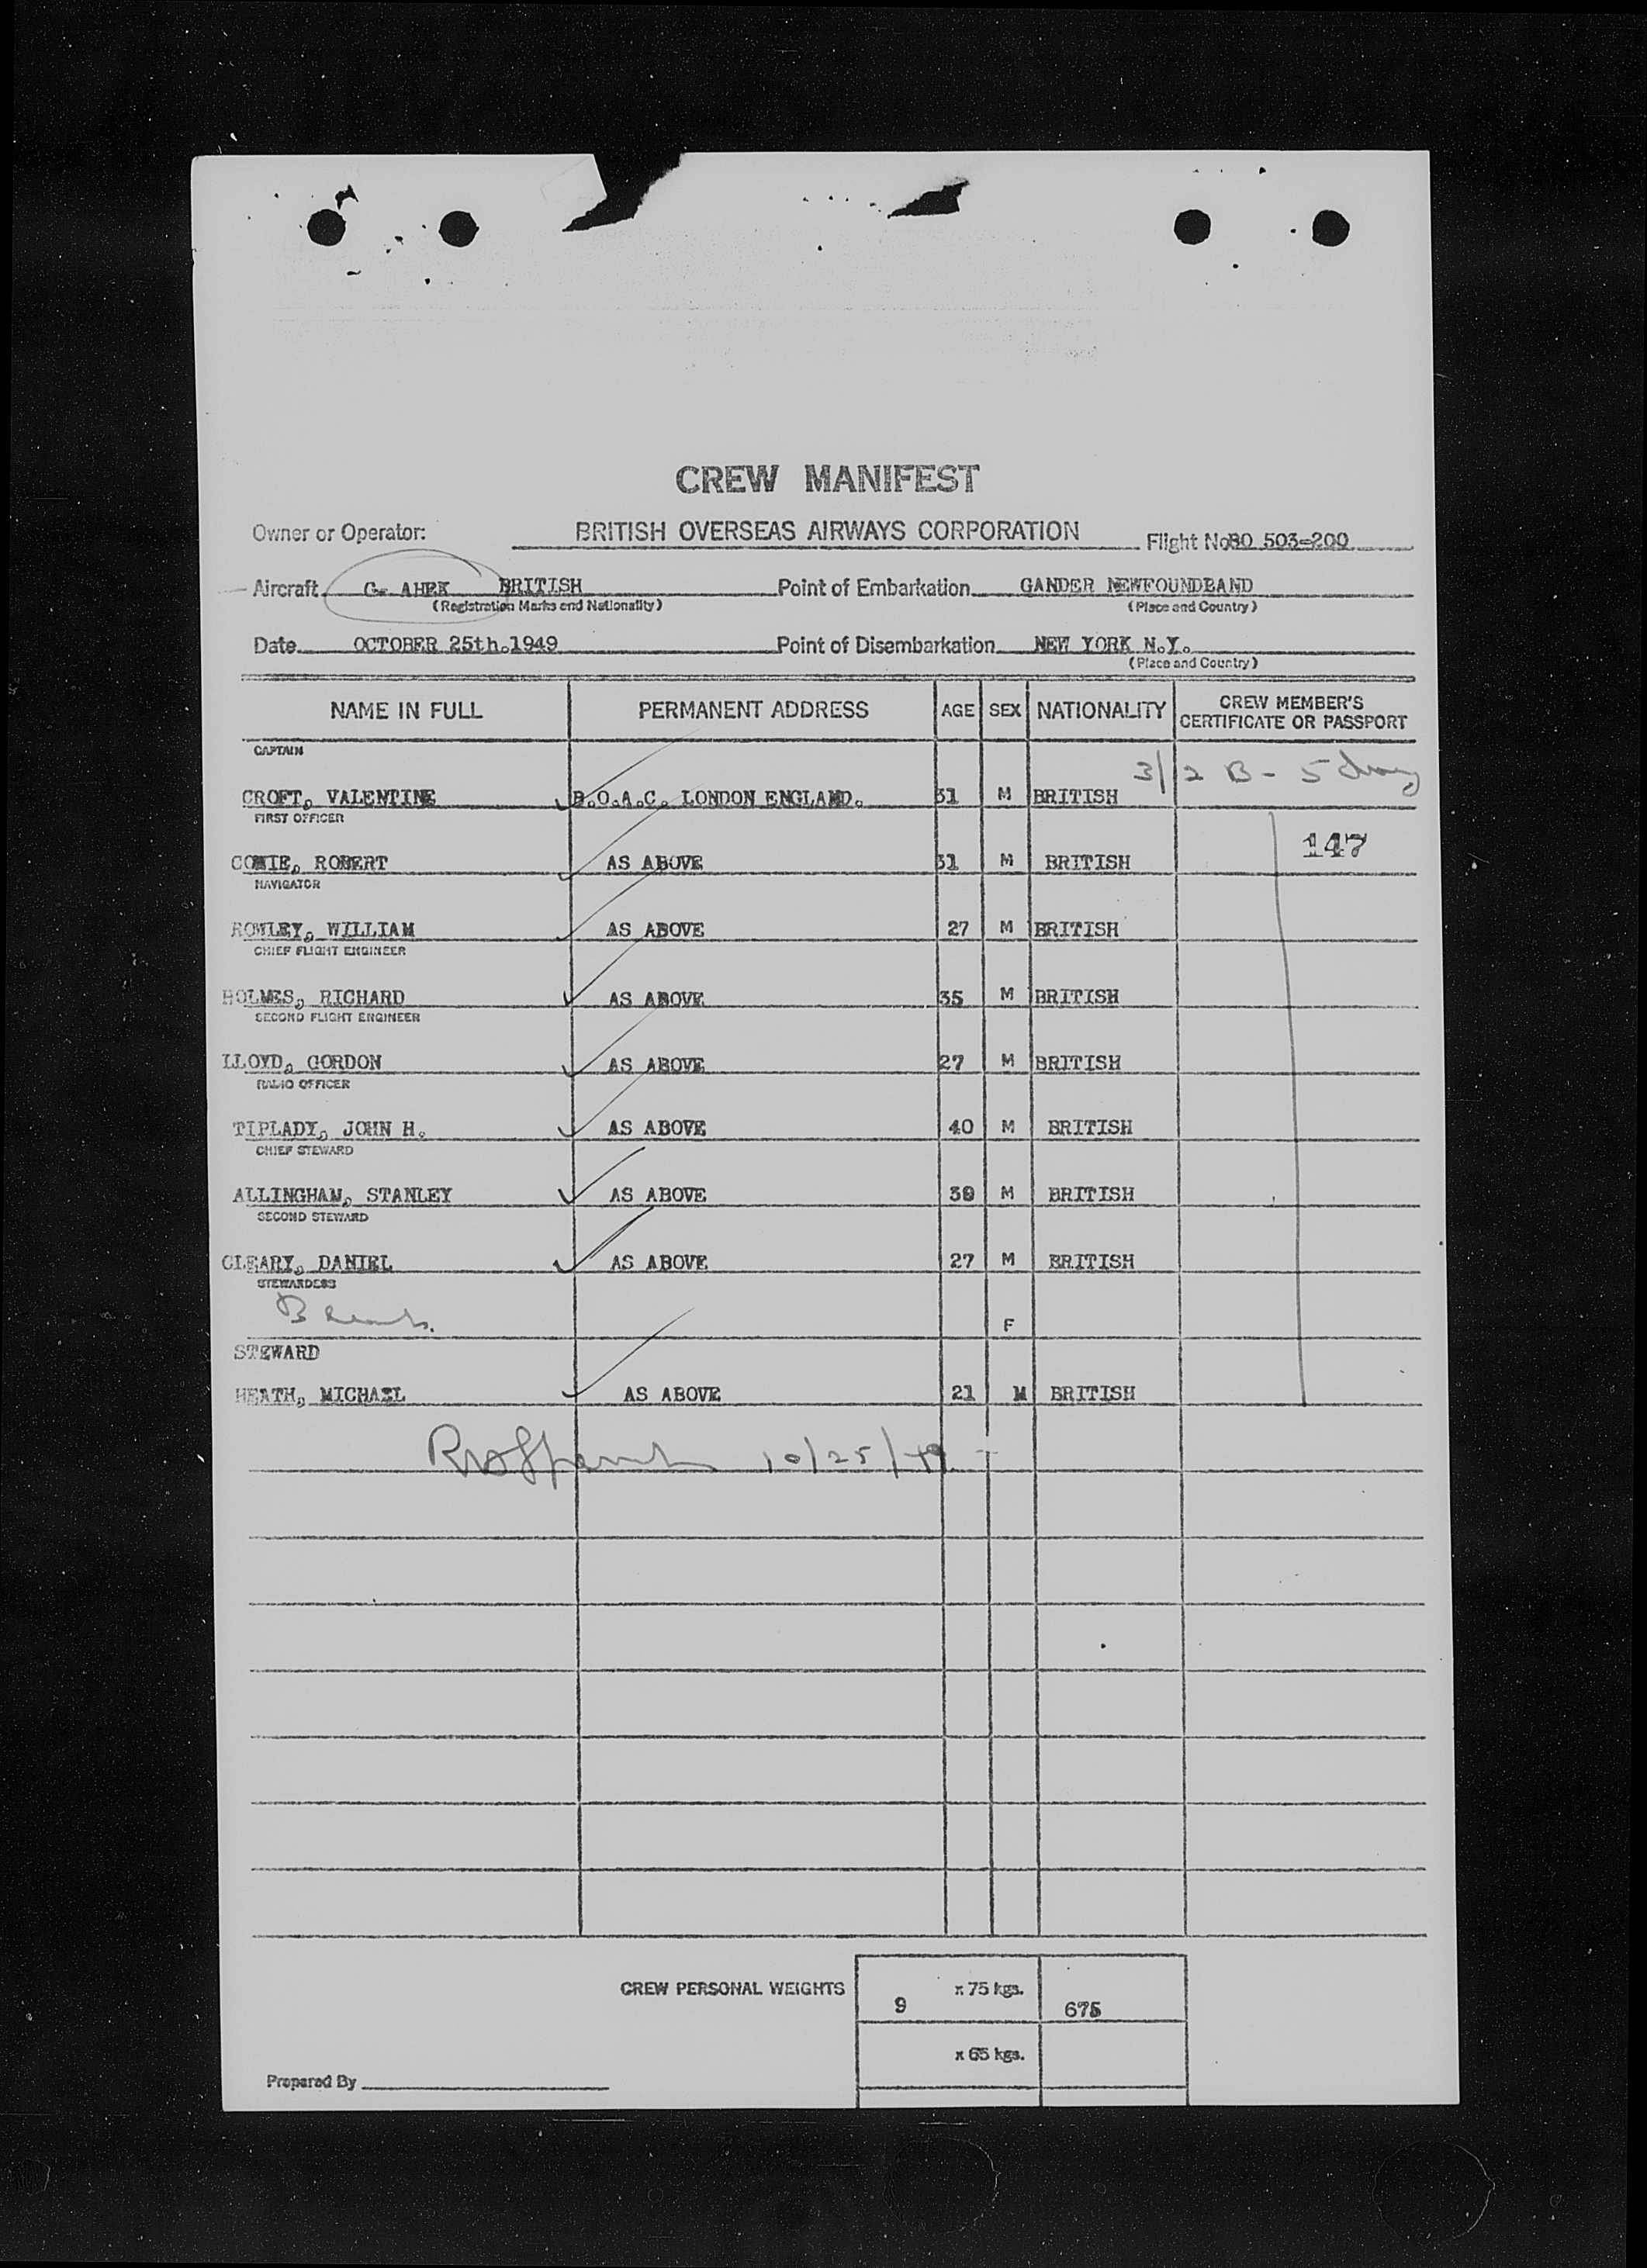 CREW MANIFEST
Owner or Operator: BRITISH OVERSEAS AIRWAYS CORPORATION Flight No BO 503-200
Aircraft G- AHEK BRITISH Point of Embarkation GANDER NEWFOUNDLAND
(Registration Marks and Nationality) (Place and Country)
Date OCTOBER 25th.1949 Point of Disembarkation NEW YORK N.Y.
(Place and Country)
NAME IN FULL PERMANENT ADDRESS AGE SEX NATIONALITY CREW MEMBER'S CERTIFICATE OR PASSPORT
CAPTAIN
3/2 B - 5
CROFT, VALENTINE B.O.A.C. LONDON ENGLAND. 31 M BRITISH
FIRST OFFICER
147
ROBERT AS ABOVE 31 M BRITISH
NAVIGATOR
ROWLEY, WILLIAM AS ABOVE 27 M BRITISH
CHIEF FLIGHT ENGINEER
HOLMES, RICHARD AS ABOVE 35 M BRITISH
SECOND FLIGHT ENGINEER
LLOYD, GORDON AS ABOVE 27 M BRITISH
RADIO OFFICER
TIPLADY, JOHN H. AS ABOVE 40 M BRITISH
CHIEF STEWARD
ALLINGHAM, STANLEY AS ABOVE M BRITISH
SECOND STEWARD
CLEARY, DANIEL AS ABOVE 27 M BRITISH
STEWARDESS
F
STEWARD
HEATH, MICHAEL AS ABOVE 21 M BRITISH
10/25/49
CREW PERSONAL WEIGHTS 9 x 75 kgs. 675
x 65 kgs.
Prepared By